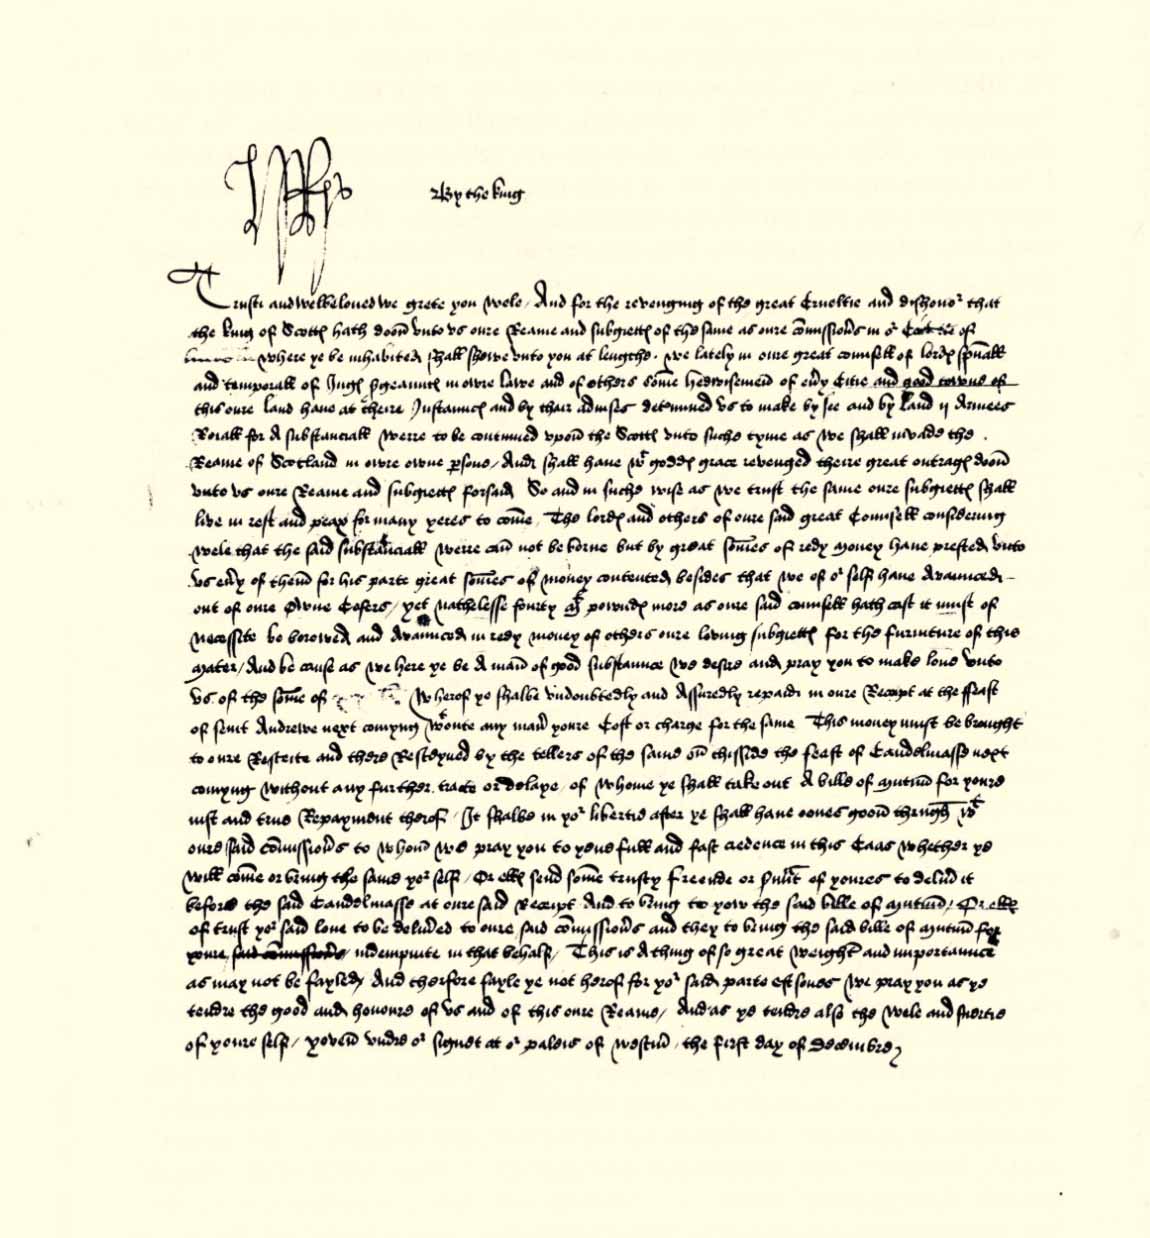 By the king
Trusti and welbeloved we grete you wele / And for the revenging of the great Crueltie and dishonor that
the king of Scottes hath doon vnto vs oure Reame and subgiettes of the same as oure comissiouers in or of
where ye be inhabited shall shewe vnto you at lengthe . We lately in oure great counsell of lordes spuall
and temporall of Juges sgeauntes in owre lawe and of others some hedwisemen of euy Citie and good towne of
this oure land haue at theire Instaunces and by thair aduises determined vs to make by see and by land ij Armees
Roiall for A substanciall werre to be contynued vpon the Scottes vnto suche tyme as we shall invade the
Reame of Scotland in owre owne psone / And shall haue wt goddes grace revenged theire great outrages doon
vnto vs oure Reame and subgiettes forsaid So and in suche wise as we trust the same oure subgiettes shall
live in rest and peax for many yeres to come / The lordes and others of oure said great Counsell considering
wele that the said substanciall werre can not be borne but by great somes of redy money haue prested vnto
vs euy of theim for his parte great somes of money contented besides that we of or self haue Avaunced
out of oure Owne Cofers / yet nathelesse fourty powndes more as oure said counsell hath cast it must of
necessite be borowed and Avaunced in redy money of others oure loving subgiettes for the furniture of this
mater / And be cause as we here ye be A man of good substaunce We desire and pray you to make lone vnto
vs of the some of Wherof ye shalbe vndoubtedly and Assuredly repaide in oure Receipt at the ffeast
of seint Andrewe next comyng wtoute any maner youre Cost or charge for the same This money must be brought
to oure Receite and there Resceyued by the tellers of the same on thisside the feast of Candelmasse next
comyng without any further tracte or delaye / of whome ye shall take out A bille of mutuum for youre
iust and true Repayment therof / It shalbe in yor libertie after ye shall haue oones goon through wt
oure said comissioners to whom we pray you to yeue full and fast credence in this Caas whether ye
will come or bring the same yor self / Or elles send some trusty Freende or sunt of youres to deliu it
before the said Candelmasse at oure said Receipt And to bring to yow the said bille of mutuum / Or elles
of trust yor said lone to be deliued to oure said comissiouers and they to bring the said bille of mutuum for
youre indempnite in that behalf / This is A thing of so great weight and importaunce
as may not be fayled / And therfore fayle ye not herof for yor said parte eftsones We pray you as ye
tendre the good and honoure of vs and of this oure Reame / And as ye tendre also the wele and suertie
of youre self / yoven vndre or signet at or paleis of westm / the first day of Decembre